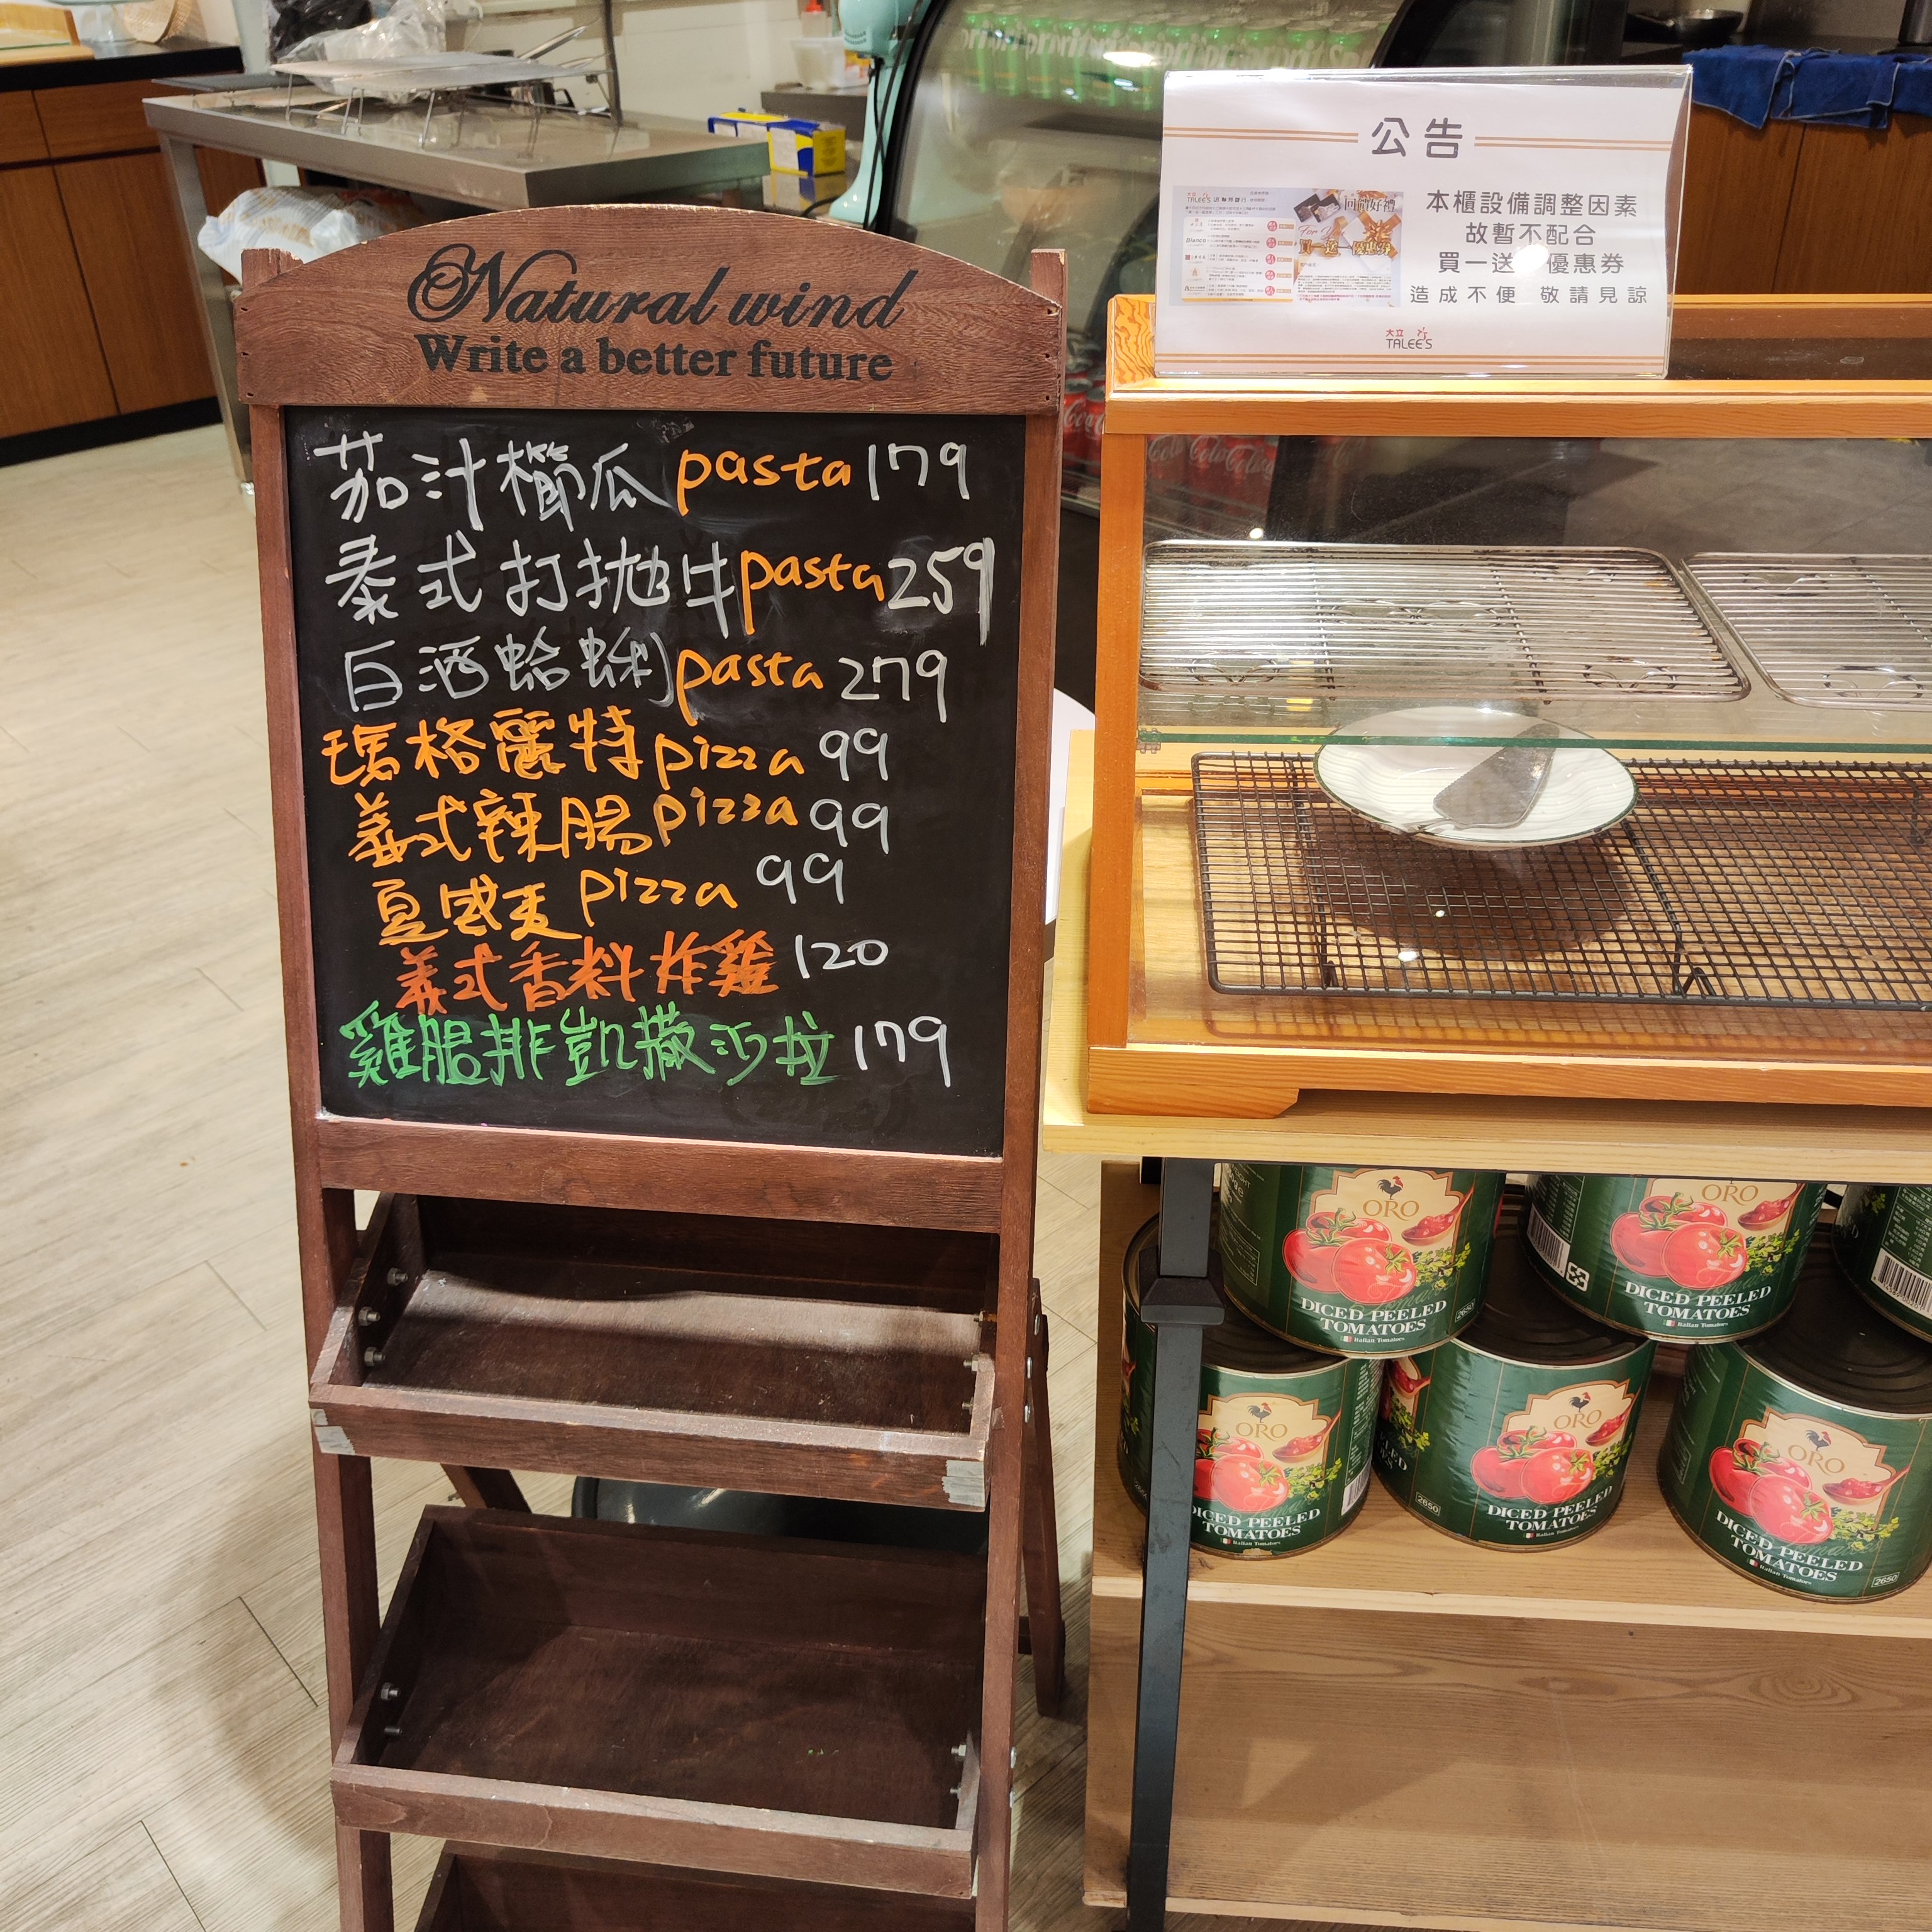 Natural wind
Write a better future
茄汁櫛瓜 pasta 179
泰式打拋牛pasta 259
白酒蛤蜊pasta 279
瑪格麗特pizza 99
義式辣腸pizza 99
夏威夷pizza 99
義式香料炸雞 120
雞腿排凱撒沙拉 179
公告
回饋好禮
買一送一優惠券
本櫃設備調整因素
故暫不配合
買一送 優惠券
造成不便 敬請見諒
大立
TALEE'S
Coca-Cola
ORO
DICED PEELED
TOMATOES
Italian Tomatoes
2650
ORO
DICED PEELED
TOMATOES
Italian Tomatoes
ORO
DICED PEELED
TOMATOES
Italian Tomatoes
ORO
DICED PEELED
TOMATOES
Italian Tomatoes
2650
ORO
DICED PEELED
TOMATOES
Italian Tomatoes
2650